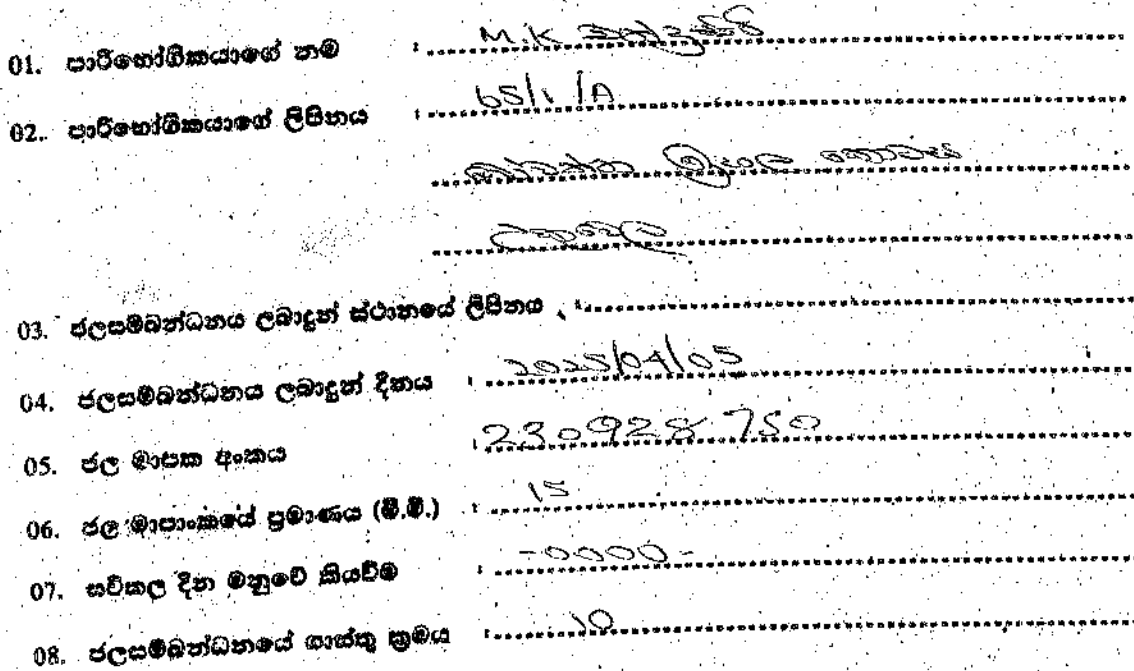 01. පාරිභෝගිකයාගේ නම : M.K
02. පාරිභෝගිකයාගේ ලිපිනය : 65/1/A
03. ජලසම්බන්ධනය ලබාදුන් ස්ථානයේ ලිපිනය :
04. ජලසම්බන්ධනය ලබාදුන් දිනය : 2025/04/05
05. ජල මාපක අංකය : 230928750
06. ජල මාපාංකයේ ප්‍රමාණය (මි.මී.) : 15
07. සවිකල දින මනුවේ කියවීම : -0000-
08. ජලසම්බන්ධනයේ ගාස්තු ක්‍රමය : 10